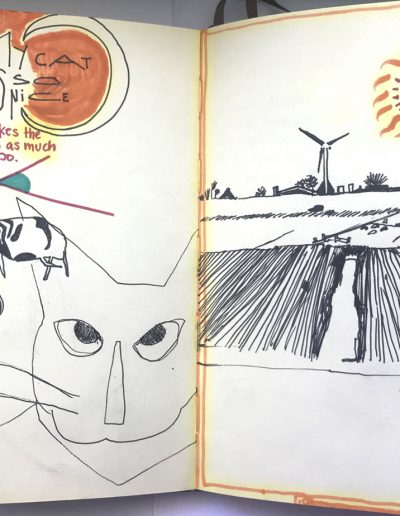 MY CAT
iS so
NiCE
kes the
as much
oo.